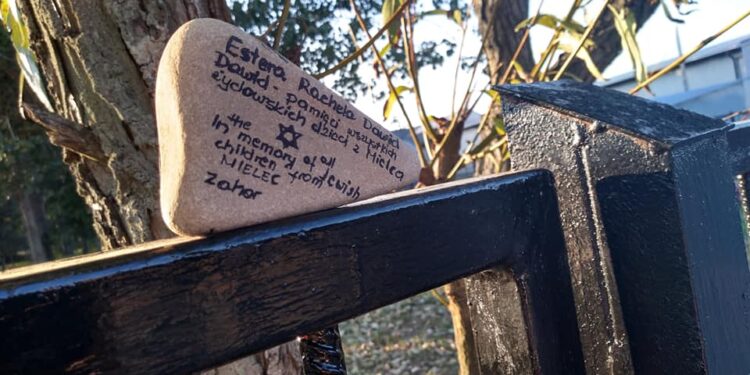 Estera Rachela Dawid
Dawid - pamięci wszystkich
żydowskich dzieci z Mielca
In memory of all the
children from Jewish
MIELEC
Zahor